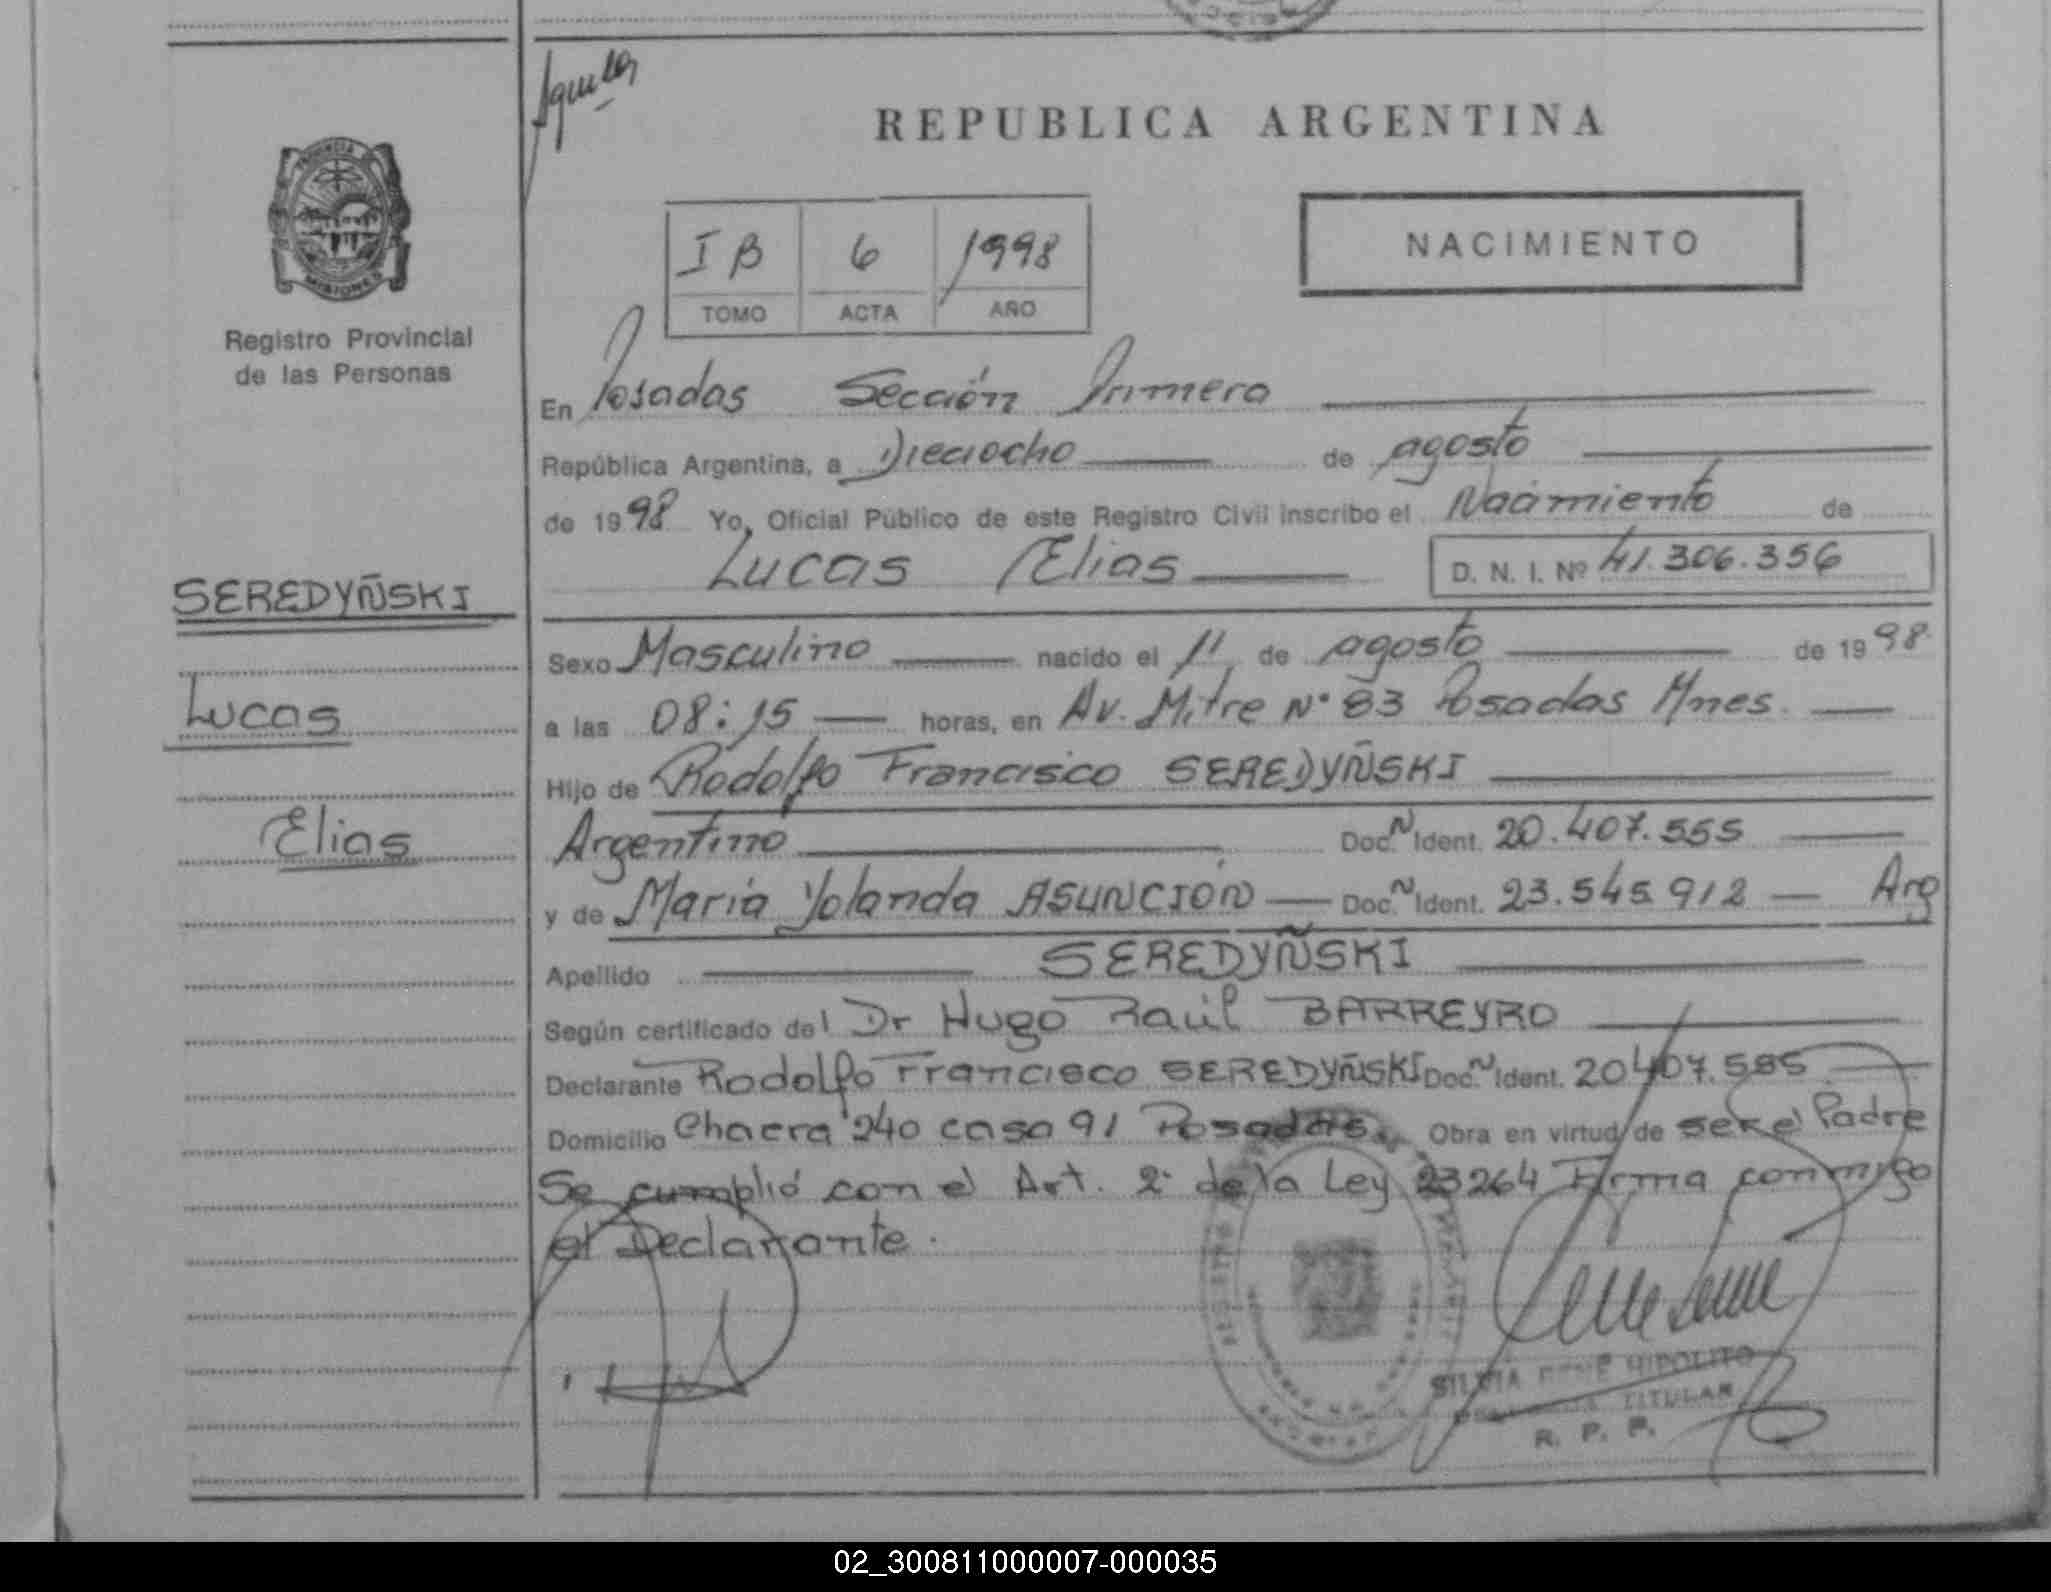 Aguilar
REPUBLICA ARGENTINA
PROVINCIA
MISIONES
Registro Provincial
de las Personas
I B 6 1998
TOMO ACTA AÑO
NACIMIENTO
En Posadas Sección Primera
República Argentina, a Dieciocho de agosto
de 1998 Yo, Oficial Público de este Registro Civil inscribo el Nacimiento de
Lucas Elias D. N. I. Nº 41.306.356
SEREDYÑSKI
Lucas
Elias
Sexo Masculino nacido el 11 de agosto de 1998
a las 08:15 horas, en Av. Mitre Nº 83 Posadas Mnes.
Hijo de Rodolfo Francisco SEREDYÑSKI
Argentino Doc. Ident. 20.407.555
y de María Yolanda ASUNCIÓN Doc. Ident. 23.545.912 Arg
Apellido SEREDYÑSKI
Según certificado del Dr Hugo Raúl BARREYRO
Declarante Rodolfo Francisco SEREDYÑSKI Doc. Ident. 20.407.555
Domicilio Chacra 240 casa 91 Posadas. Obra en virtud de ser el Padre
Se cumplió con el Art. 2º de la Ley 23264 Firma conmigo
el Declarante.
SILVIA RENÉ HIPOLITO
TITULAR
R. P. P.
02_300811000007-000035